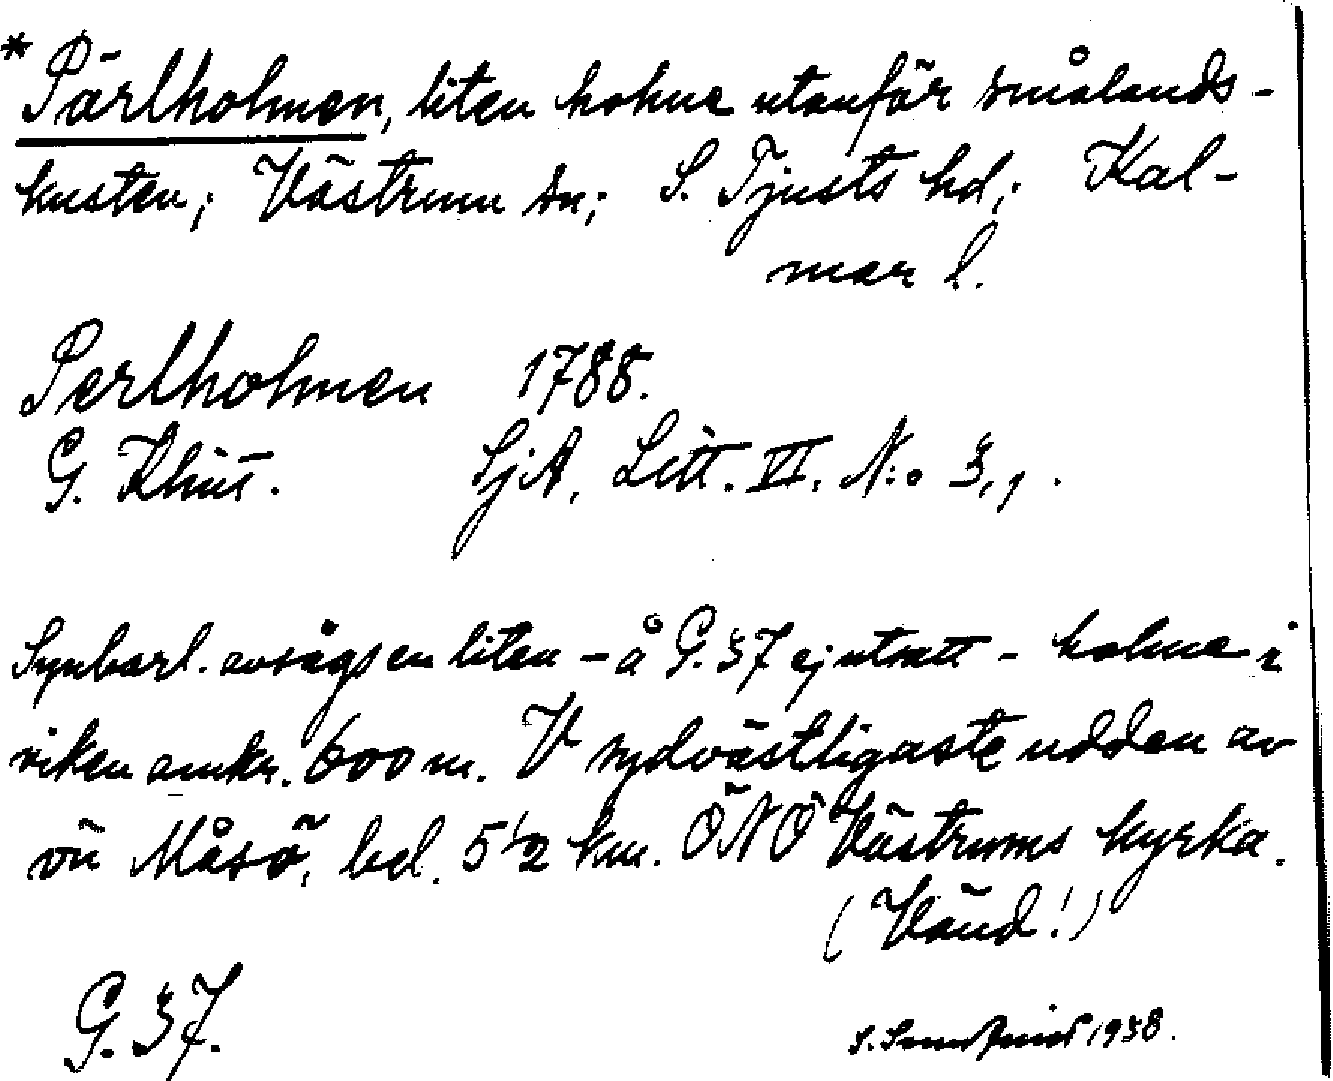 * Pärlholmen, liten holme utanför smålands-
kusten; Västrum sn; S. Tjusts hd; Kal-
mar l.
Perlholmen 1788.
G. Klint. SjA, Litt. VI. N:o 3,1.
Synbarl. avsågs en liten – å G. 37 ej utsatt – holme i
viken omkr. 600 m. V sydvästligaste udden av
ön Måsö, bel. 5 1/2 km. ÖNÖ Västrums kyrka.
(Vänd!)
G. 37.
S. 1938.